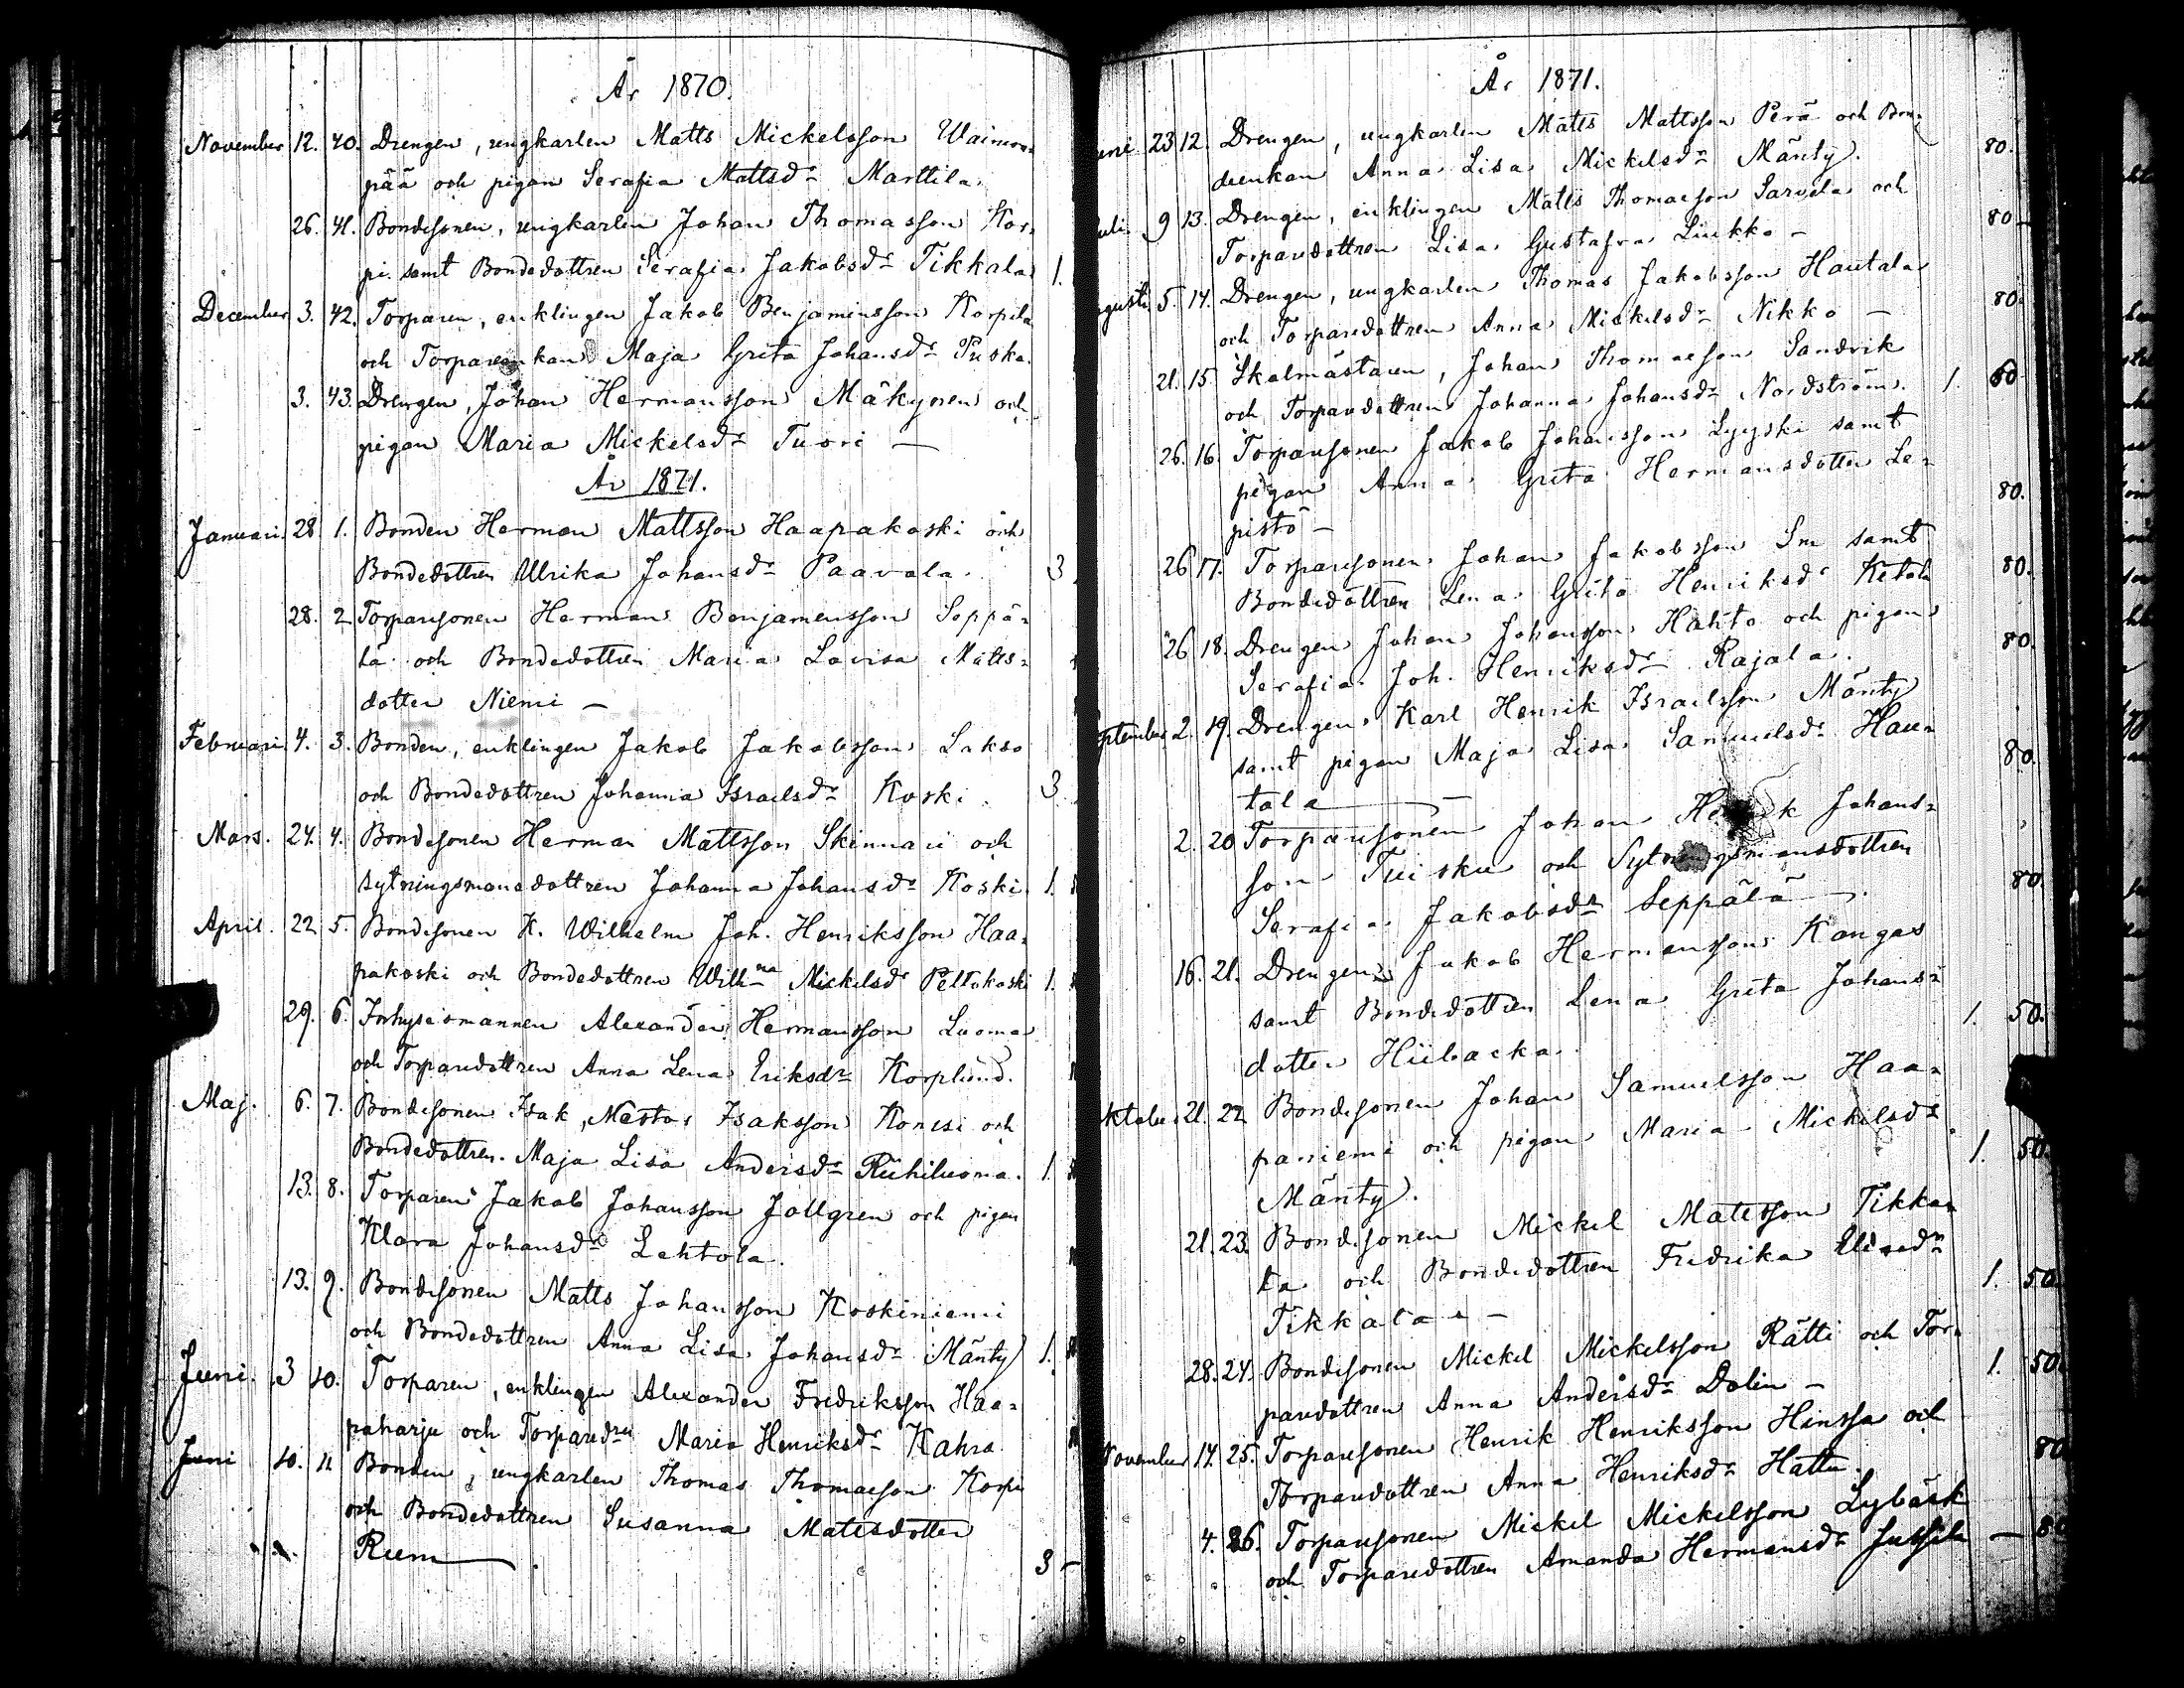 År 1870.
November 12. 40. Drengen, ungkarlen Matts Mickelsson Waimon-
pää och pigan Serafia Mattsdr Marttila.
26. 41. Bondesonen, ungkarlen Johan Thomasson Kor-
pi samt Bondedottren Serafia Jakobsdr Tikkala 1.
December 3. 42. Torparen, enklingen Jakob Benjaminsson Korpila
och Torpareenkan Maja Greta Johansdr Puska.
3. 43. Drengen, Johan Hermansson Mäkynen och
pigan Maria Mickelsdr Tuori —
År 1871.
Januari 28 1. Bonden Herman Mattsson Haapakoski och
Bondedottren Ulrika Johansdr Paavola. 3
28. 2 Torparesonen Herman Benjaminsson Seppä-
lä och Bondedottren Maria Lovisa Matts-
dotter Niemi —
Februari 4. 3. Bonden, enklingen Jakob Jakobsson Lakso
och Bondedottren Johanna Israelsdr Koski. 3
Mars. 24. 4. Bondesonen Herman Mattsson Skinnari och
sytningsmansdottren Johanna Johansdr Koski 1.
April. 22 5. Bondesonen K. Wilhelm Joh. Henriksson Haa-
pakoski och Bondedottren Willna Mickelsdr Peltokoski 1.
29. 6. Inhysesmannen Alexander Hermansson Luoma
och Torparedottren Anna Lena Eriksdr Korplund.
Maj. 6. 7. Bondesonen Isak, Nestor Isaksson Konesi och
Bondedottren Maja Lisa Andersdr Riihiluoma. 1.
13. 8. Torparen Jakob Johansson Jollgren och pigan
Klara Johansdr Lehtola.
13. 9. Bondesonen Matts Johansson Koskiniemi
och Bondedottren Anna Lisa Johansdr Mänty 1.
Juni. 3 10. Torparen, enklingen Alexander Fredriksson Haa-
paharju och Torparedren Maria Henriksdr Kahra.
Juni 10. 11 Bonden, ungkarlen Thomas Thomasson Korpi
och Bondedottren Susanna Mattsdotter
Rum — 3 -
År 1871.
uni 23 12. Drengen, ungkarlen Matts Mattsson Perä och Bon-
deenkan Anna Lisa Mickelsdr Mänty. 80.
uli 9 13. Drengen, enklingen Matts Thomasson Sarvela och
Torparedottren Lisa Gustafva Liukko — 80 -
gusti 5. 14. Drengen, ungkarlen Thomas Jakobsson Hautala
och Torparedottren Anna Mickelsdr Nikko — 80.
21. 15. Skolmästaren, Johan Thomasson Sandvik
och Torparedottren Johanna Johansdr Nordström. 1. 60
26. 16. Torparesonen Jakob Johansson Lyyski samt
pigan Anna Greta Hermansdotter Le-
pistö — 80.
26 17. Torparesonen Johan Jakobsson Sm samt
Bondedottren Lena Greta Henriksdr Ketola 80.
26 18. Drengen Johan Johansson Hahto och pigan
Serafia Joh. Henriksdr Rajala. 80.
ptember 2. 19. Drengen Karl Henrik Israelsson Mänty
samt pigan Maja Lisa Samuelsdr Hau-
tala — 80.
2. 20 Torparesonen Johan Henrik Johans-
son Tuisku och Sytningsmansdottren
Serafia Jakobsdr Seppälä — 80
16. 21. Drengen Jakob Hermansson Kangas
samt Bondedottren Lena Greta Johans-
dotter Hiibacka. 1. 50.
ktober 21. 22 Bondesonen Johan Samuelsson Haa-
paniemi och pigan Maria Mickelsdr
Mänty. 1. 50.
21. 23. Bondesonen Mickel Mattsson Tikka-
la och Bondedottren Fredrika Eliasdr
Tikkala — 1. 50
28. 24. Bondesonen Mickel Mickelsson Rätti och Tor-
paredottren Anna Andersdr Dolin — 1. 50
November 14. 25. Torparesonen Henrik Henriksson Hinssa och
Torparedottren Anna Henriksdr Hattu. 80
4. 26. Torparesonen Mickel Mickelsson Lybäck
och Torparedottren Amanda Hermansdr Jussila — 80